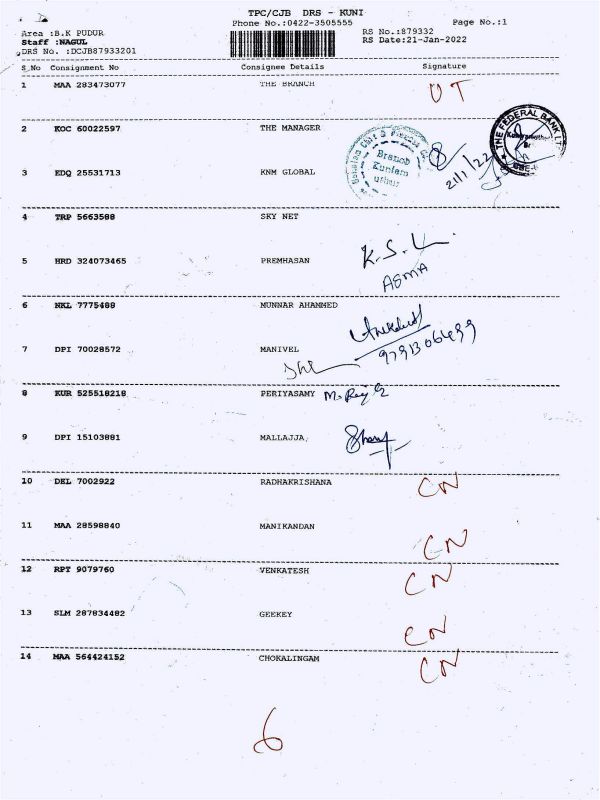 TPC/CJB DRS - KUNI
Phone No.:0422-3505555 Page No.:1
Area :B.K PUDUR RS No.:879332
Staff :NAGUL RS Date:21-Jan-2022
DRS No. :DCJB87933201
S_No Consignment No Consignee Details Signature
1 MAA 283473077 THE BRANCH UT
2 KOC 60022597 THE MANAGER
THE FEDERAL BANK LT
Branch
Kuniam
uthur
21/1/22
3 EDQ 25531713 KNM GLOBAL
4 TRP 5663588 SKY NET
5 HRD 324073465 PREMHASAN K.S.
ASMA
6 NKL 7775488 MUNNAR AHAMMED
7 DPI 70028572 MANIVEL
8 KUR 525518218 PERIYASAMY
9 DPI 15103881 MALLAJJA,
10 DEL 7002922 RADHAKRISHANA CN
11 MAA 28598840 MANIKANDAN CN
12 RPT 9079760 VENKATESH CN
13 SLM 287834482 GEEKEY CN
14 MAA 564424152 CHOKALINGAM CN
6